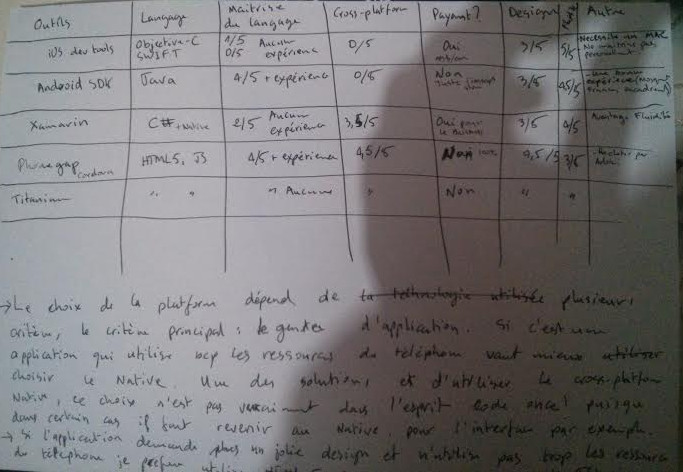 Outils Langage Maitrise du langage Cross-platform Payant? Designer Autre
iOS dev tools Objective-C SWIFT 1/5 0/5 Aucun expérience 0/5 Oui 3/5 5/5 Necessite un MAC
Android SDK Java 4/5 + expérience 0/5 Non 3/5 4,5/5
Xamarin C# + Native 2/5 Aucun expérience 3,5/5 Oui pour 3/5 4/5 Avantage Fluidité
Phonegap Cordova HTML5, JS 4/5 + expérience 4,5/5 Non 4,5/5 3/5
Titanium " " " Aucune " Non " "
→ Le choix de la platform dépend de la téhnologie utilisée plusieurs
critère, le critère principal : le gender d'application. Si c'est une
application qui utilise bcp les ressources du téléphone vaut mieux utiliser
choisir le Native. Une des solutions et d'utiliser le cross-platform
Native, ce choix n'est pas vraiment dans l'esprit code once! puisque
dans certain cas il faut revenir au Native pour l'interface par exemple.
→ Si l'application demande plus un jolie design et n'utilise pas trop les ressource
du téléphone je préfère